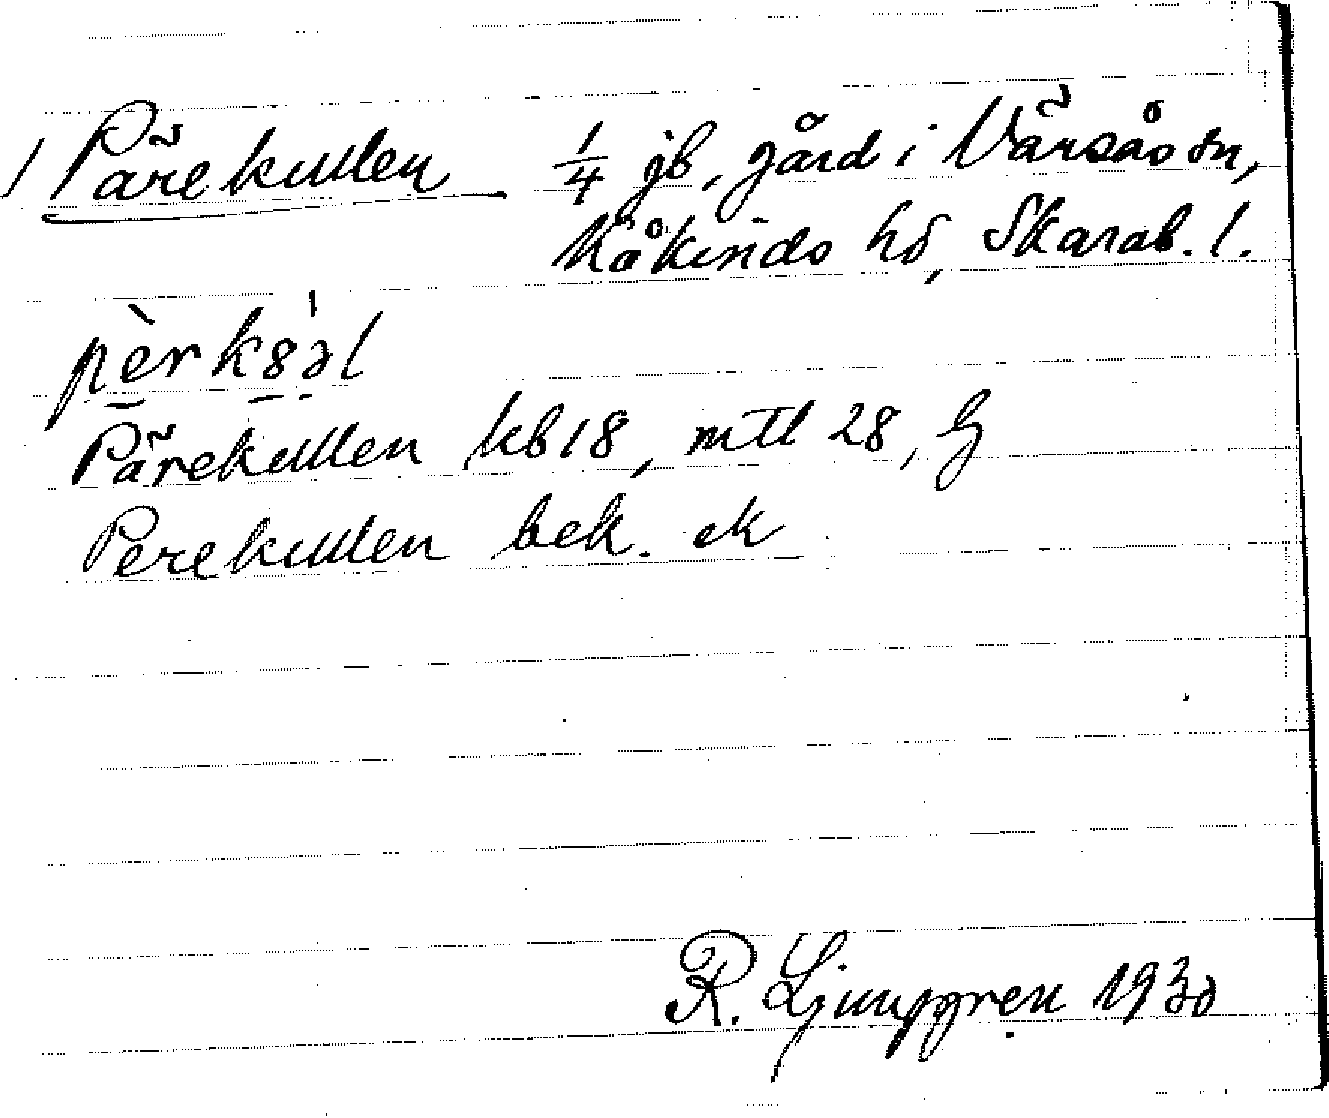 1 Pärekullen 1/4 jb, gård i Värsås sn,
Kåkinds hd, Skarab. l.
pèrk8̀əl
Pärekullen kb 18, mtl 28, G
Perekullen bek. ek
R. Ljunggren 1930